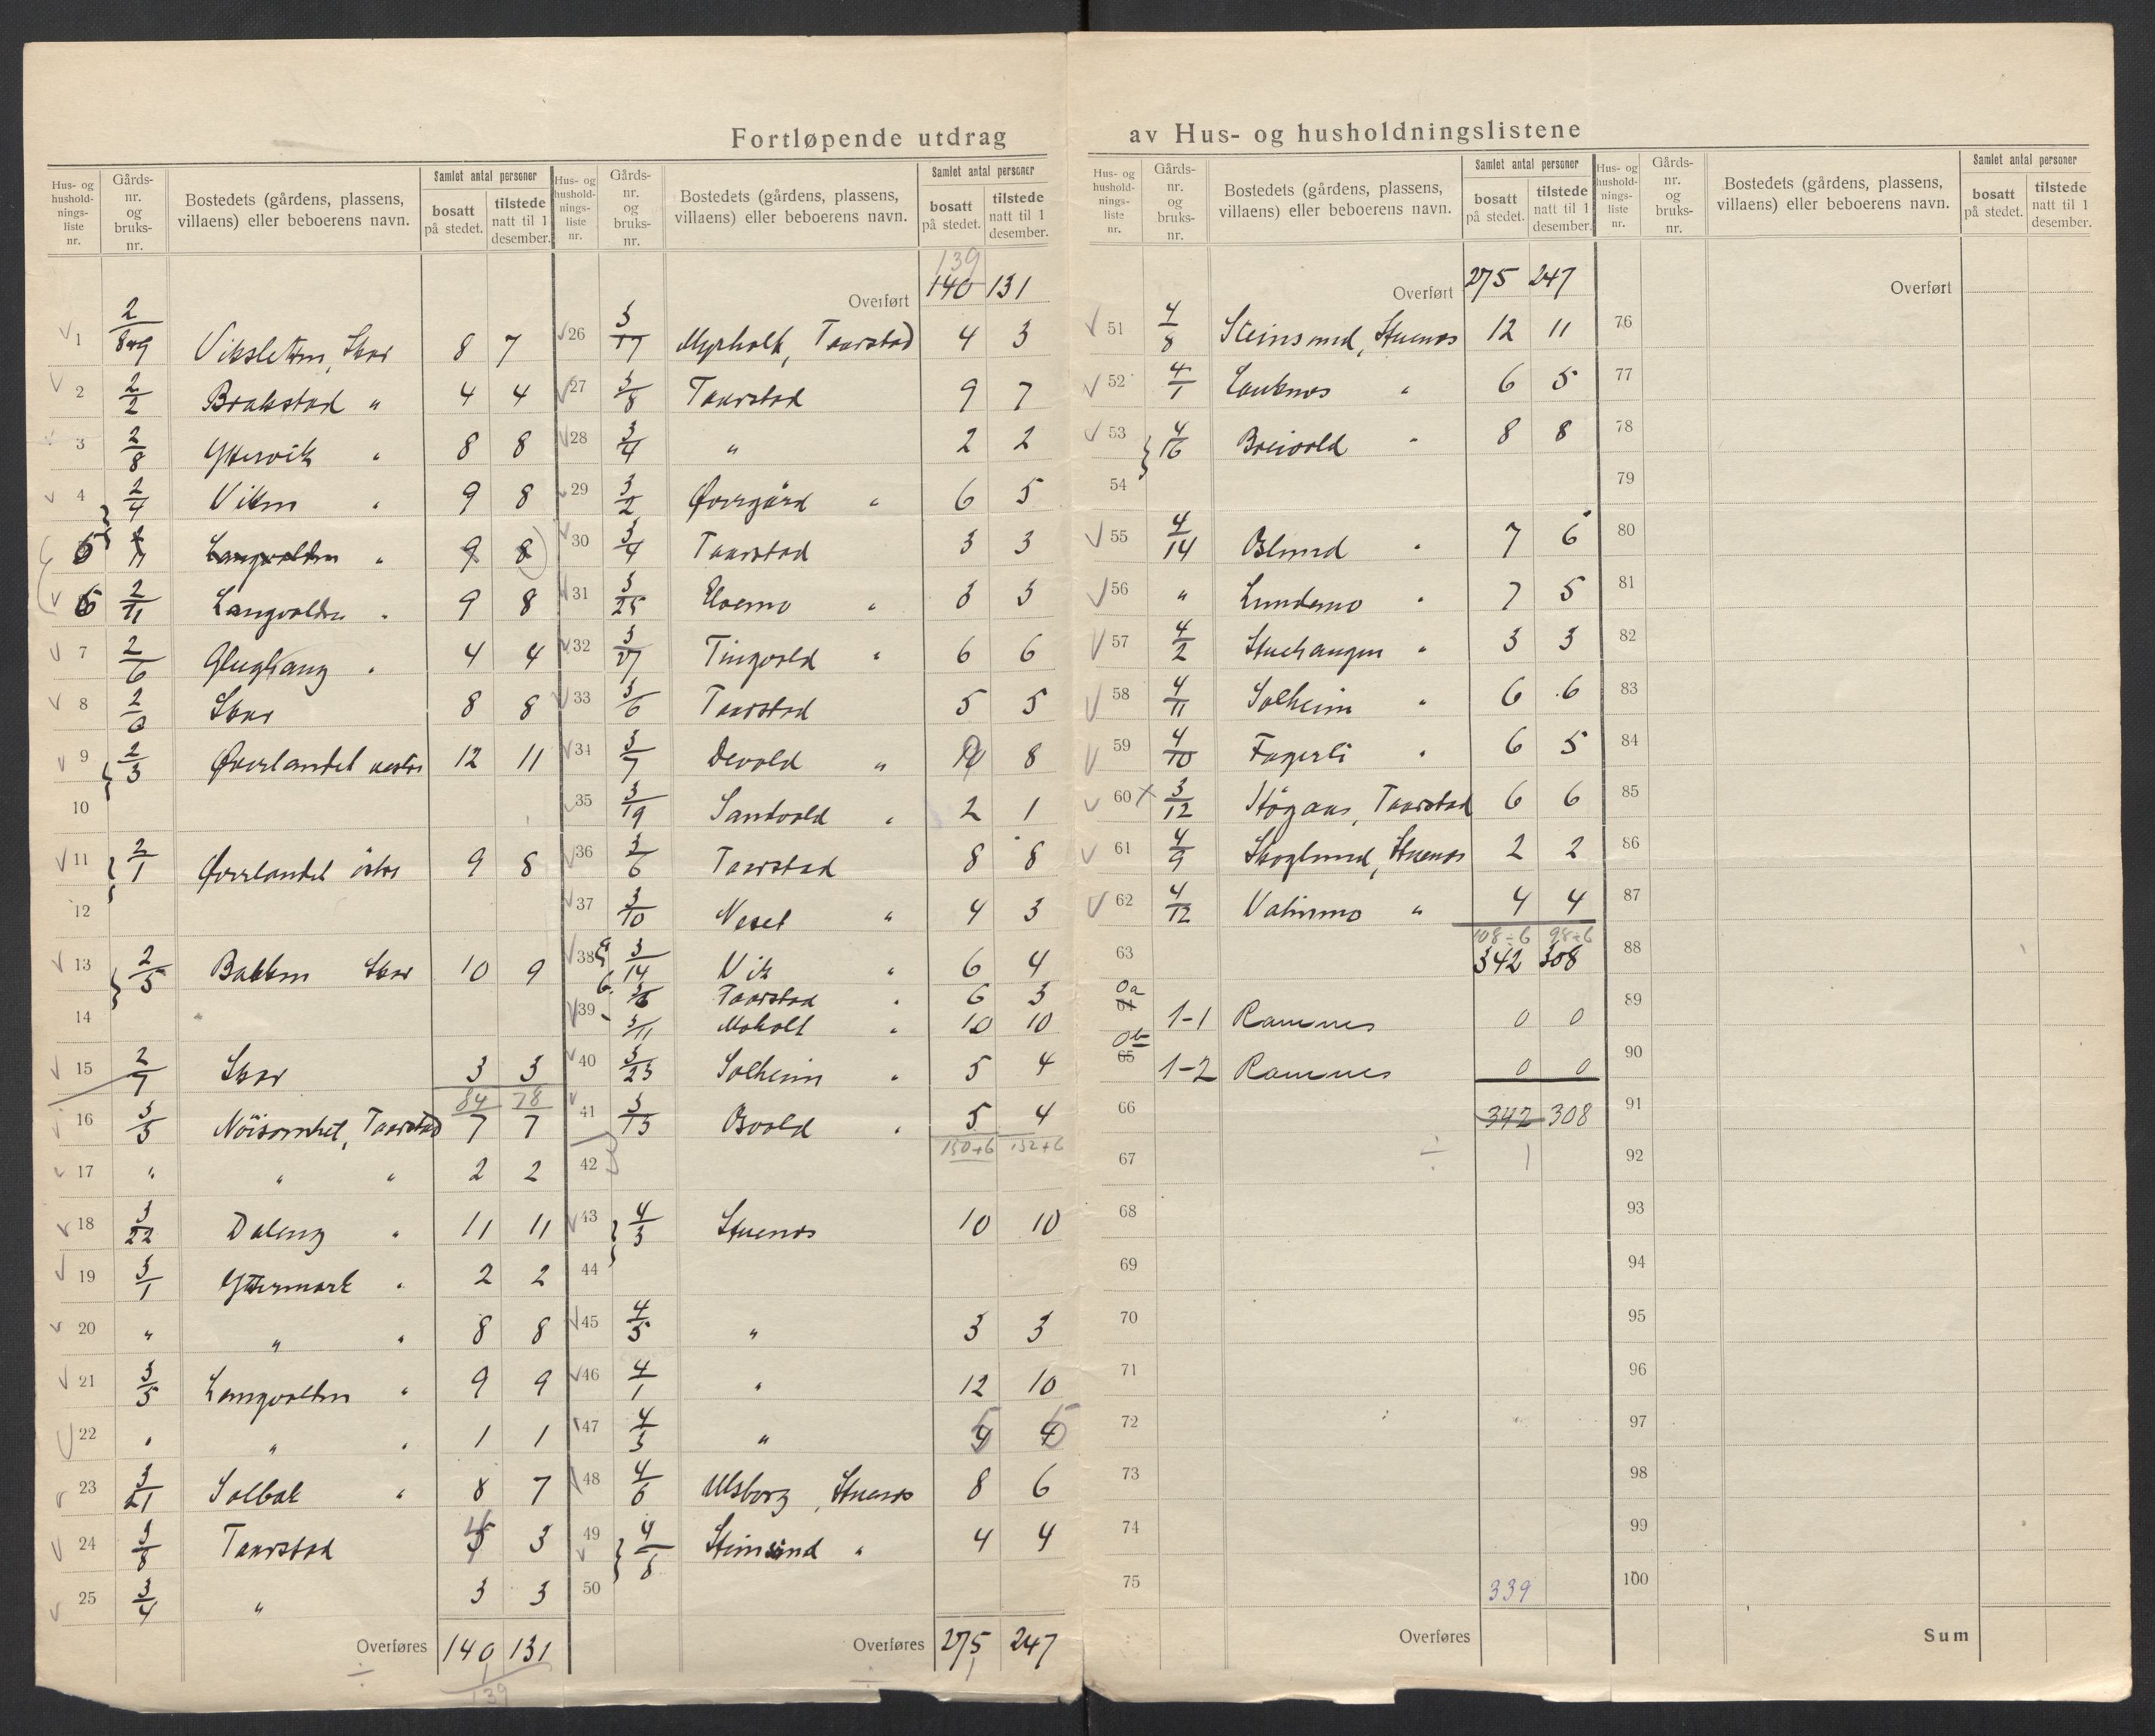 Fortløpende utdrag av Hus- og husholdningslistene
Hus- og hushold-nings-liste nr. Gårds-nr. og bruks-nr. Bostedets (gårdens, plassens, villaens) eller beboerens navn. Samlet antal personer bosatt på stedet. tilstede natt til 1 desember.
1 2/8+9 Viksletten, Skar 8 7
2 2/2 Brakstad " 4 4
3 2/8 Yttervik " 8 8
4 2/4 Viken " 9 8
5 Langvolden " 9 8
6 2/11 Langvolden " 9 8
7 2/6 Glughaug " 4 4
8 Skar 8 8
9 2/3 Øverlandet vestre 12 11
10
11 2/1 Øverlandet östre 9 8
12
13 2/5 Bakken Skar 10 9
14
15 2/7 Skar 3 3
84 78
16 3/5 Nöisomhet, Taarstad 7 7
17 " " " 2 2
18 3/22 Daleng " 11 11
19 3/1 Yttermark " 2 2
20 " " " 8 8
21 3/5 Langvolden " 9 9
22 " " " 1 1
23 3/21 Solbak " 8 7
24 3/8 Taarstad 3
25 3/4 " 3 3
Overføres 140 131
139
Hus- og hushold-nings-liste nr. Gårds-nr. og bruks-nr. Bostedets (gårdens, plassens, villaens) eller beboerens navn. Samlet antal personer bosatt på stedet. tilstede natt til 1 desember.
139
Overført 140 131
26 3/17 Myrholt, Taarstad 4 3
27 3/8 Taarstad 9 7
28 3/4 " 2 2
29 3/2 Øvergård " 6 5
30 3/4 Taarstad 3 3
31 3/25 Elvemo " 3 3
32 3/27 Tingvold " 6 6
33 3/6 Taarstad 5 5
34 3/7 Devold " 8
35 3/19 Sandvold " 2 1
36 3/6 Taarstad 8 8
37 3/10 Neset " 4 3
38 a 3/14 Vik " 6 4
b 3/6 Taarstad " 6 3
39 3/11 Moholt " 10 10
40 3/23 Solheim " 5 4
41 3/13 Bvold " 5 4
150+6 132+6
42
43 4/3 Stuenes 10 10
44
45 4/5 " 3 3
46 4/1 " 12 10
47 4/3 " 5 5
48 4/6 Ulsborg, Stuenes 8 6
49 4/8 Steinsund " 4 4
50
Overføres 275 247
Hus- og hushold-nings-liste nr. Gårds-nr. og bruks-nr. Bostedets (gårdens, plassens, villaens) eller beboerens navn. Samlet antal personer bosatt på stedet. tilstede natt til 1 desember.
Overført 275 247
51 4/8 Steinsund, Stuenes 12 11
52 4/1 Lauknes " 6 5
53 4/16 Breivold " 8 8
54
55 4/14 Øslund " 7 6
56 " Lundemo " 7 5
57 4/2 Stuehaugen " 3 3
58 4/11 Solheim " 6 6
59 4/10 Fagerli " 6 5
60 x 3/12 Högaas, Taarstad 6 6
61 4/9 Skoglund, Stuenes 2 2
62 4/12 " 4 4
108÷6 98÷6
63 342 308
64 0a 1-1 Ramnes 0 0
65 0b 1-2 Ramnes 0 0
66 342 308
67 ÷ 1
68
69
70
71
72
73
74
75 339
Overføres
Hus- og hushold-nings-liste nr. Gårds-nr. og bruks-nr. Bostedets (gårdens, plassens, villaens) eller beboerens navn. Samlet antal personer bosatt på stedet. tilstede natt til 1 desember.
Overført
76
77
78
79
80
81
82
83
84
85
86
87
88
89
90
91
92
93
94
95
96
97
98
99
100
Sum